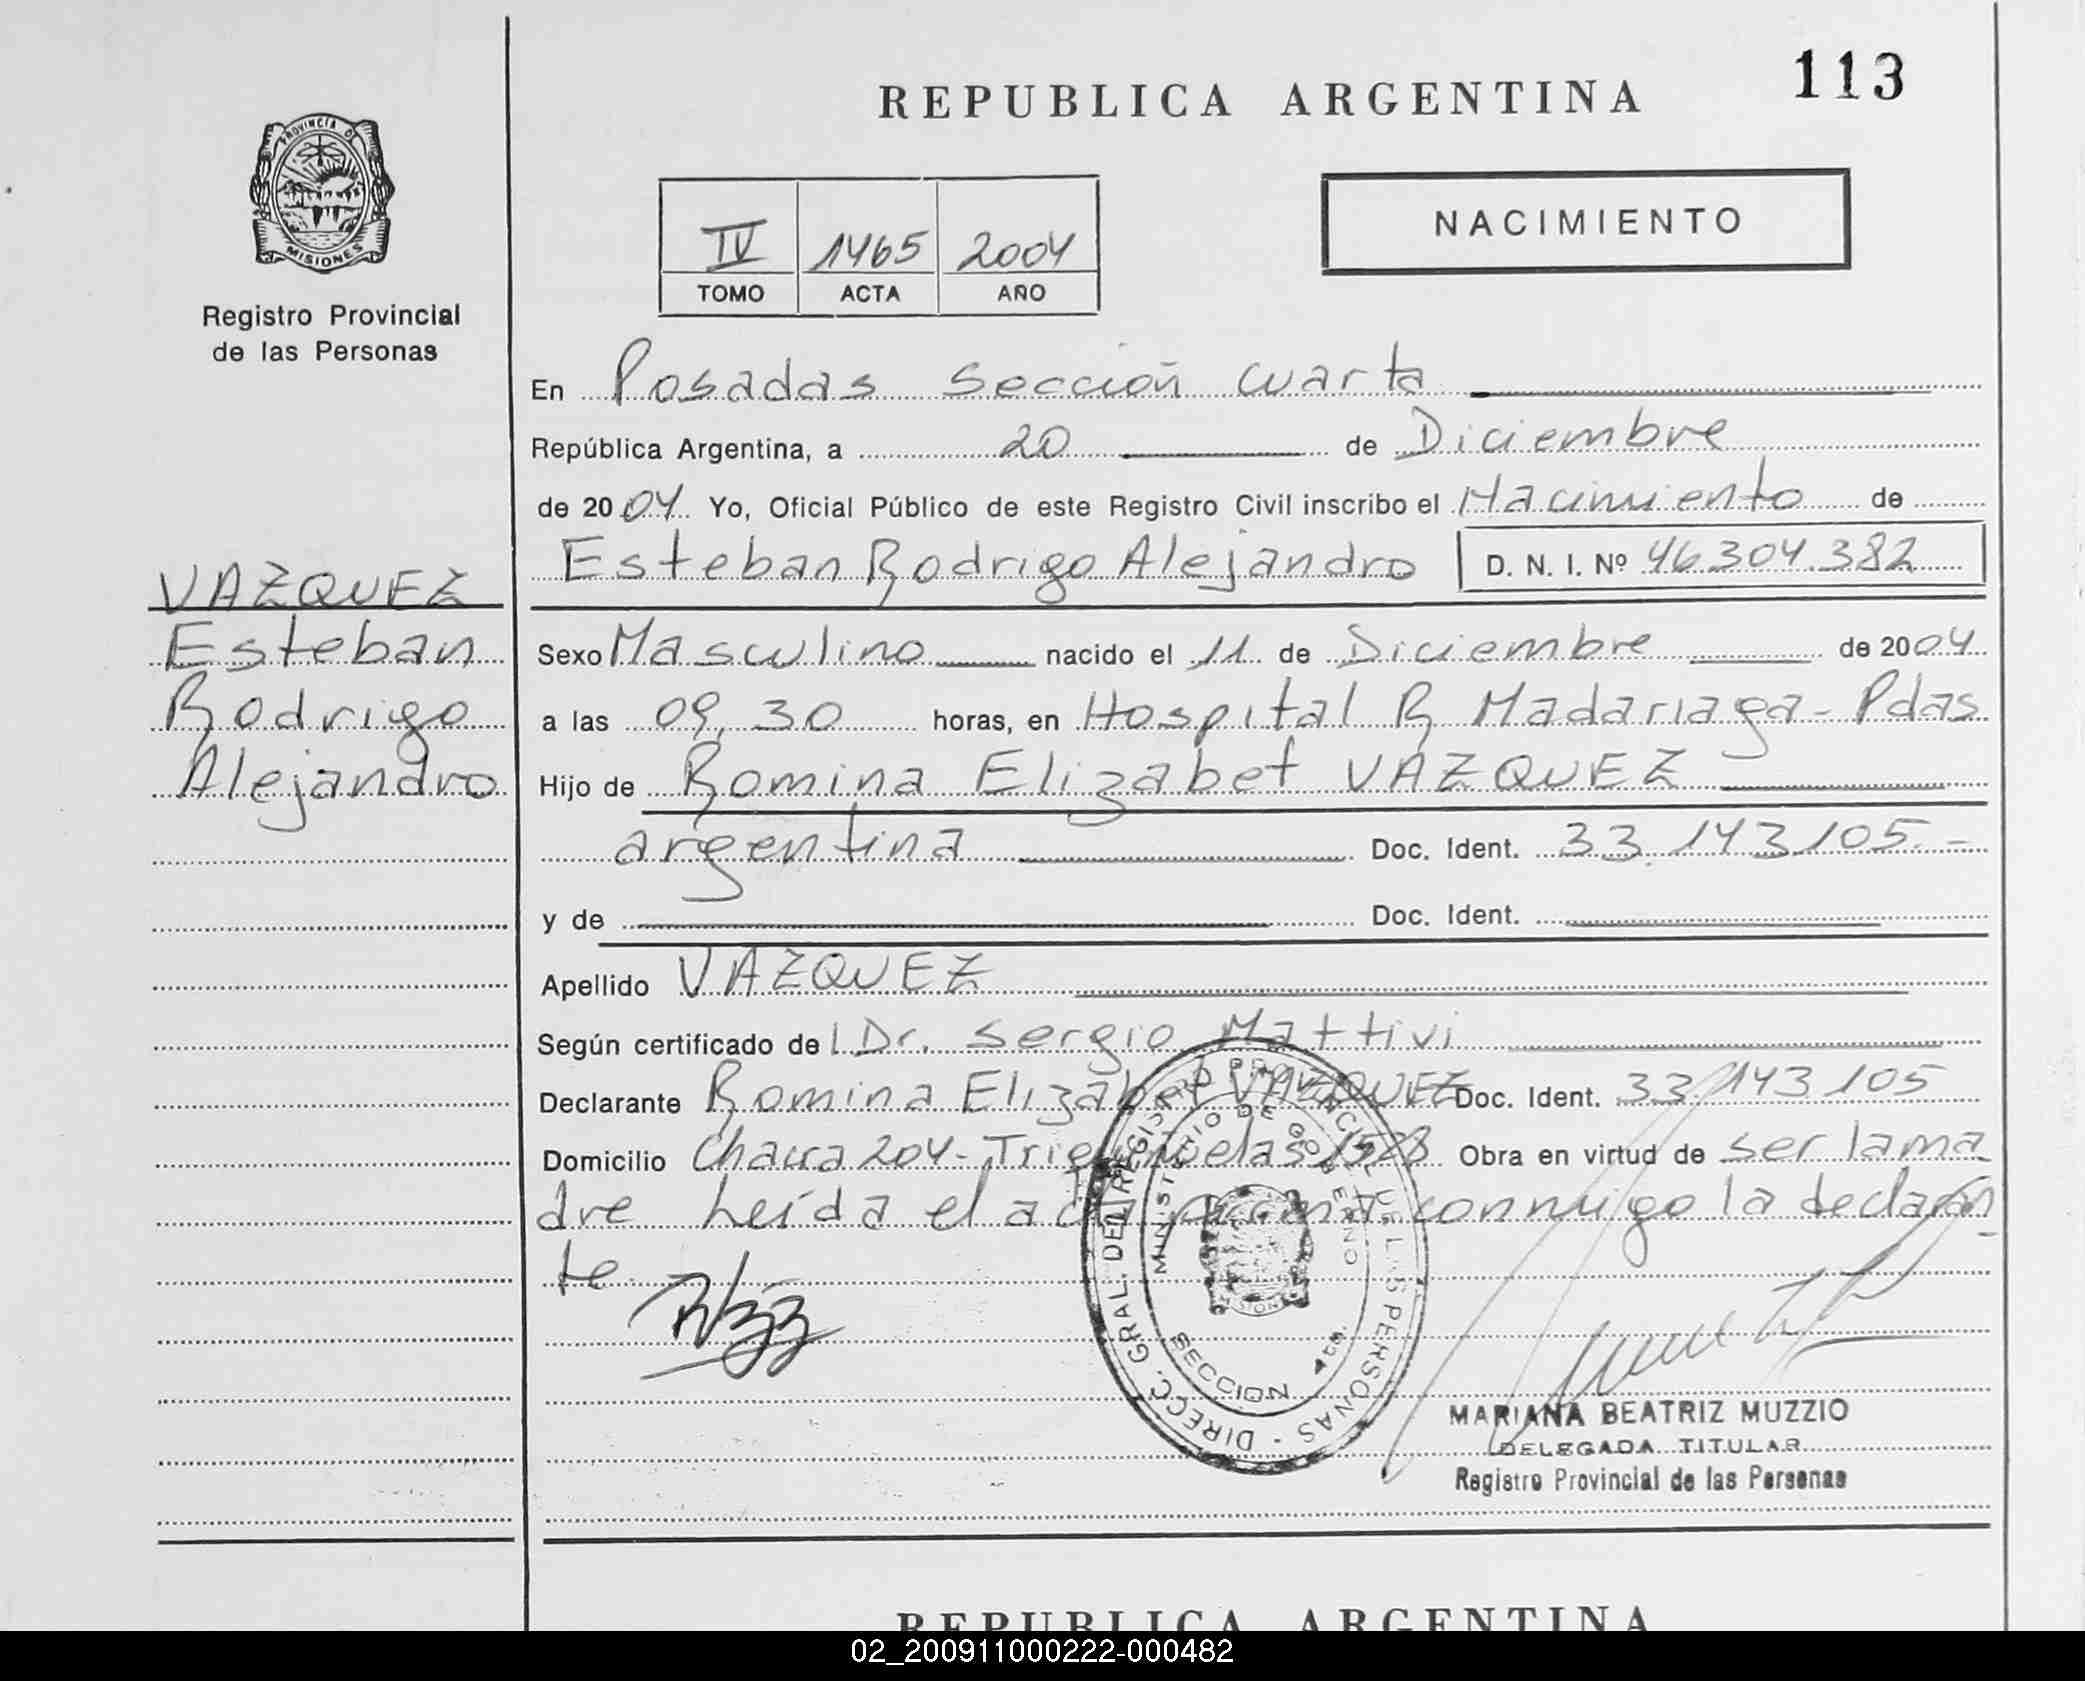 REPUBLICA ARGENTINA
113
PROVINCIA DE
MISIONES
Registro Provincial
de las Personas
IV 1465 2004
TOMO ACTA AÑO
NACIMIENTO
En Posadas Sección cuarta
República Argentina, a 20 de Diciembre
de 2004 Yo, Oficial Público de este Registro Civil inscribo el Nacimiento de
Esteban Rodrigo Alejandro D. N. I. Nº 46.304.382
VAZQUEZ
Esteban
Rodrigo
Alejandro
Sexo Masculino nacido el 11 de Diciembre de 2004
a las 09,30 horas, en Hospital R Madariaga - Pdas
Hijo de Romina Elizabet VAZQUEZ
argentina Doc. Ident. 33.143.105.-
y de Doc. Ident.
Apellido VAZQUEZ
Según certificado de l Dr. Sergio Mattivi
Declarante Romina Elizabet VAZQUEZ Doc. Ident. 33.143.105
Domicilio Chacra 204- 1528 Obra en virtud de ser la ma
dre Leída el acta firma conmigo la declaran
te.
DIRECC. GRAL. DEL REGISTRO PROVINCIAL DE LAS PERSONAS
MINISTERIO DE GOBIERNO
MISIONES
SECCION 4ta.
MARIANA BEATRIZ MUZZIO
DELEGADA TITULAR
Registro Provincial de las Personas
REPUBLICA ARGENTINA
02_200911000222-000482